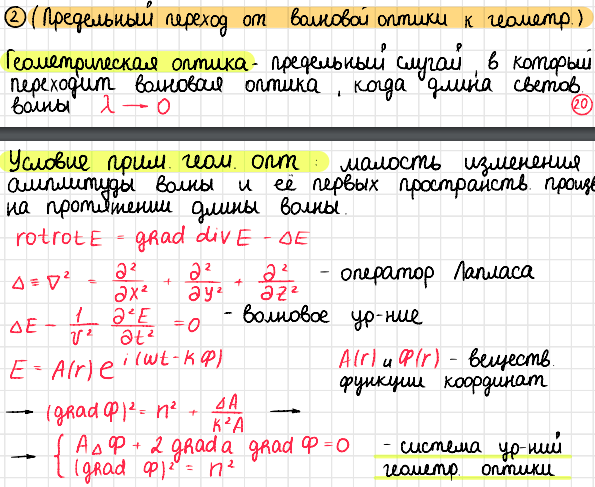 ② (Предельный переход от волновой оптики к геометр.)
Геометрическая оптика - предельный случай, в который
переходит волновая оптика, когда длина светов.
волны λ → 0
20
Условие прим. геом. опт : малость изменения
амплитуды волны и её первых пространств. произв
на протяжении длины волны.
rotrotE = grad divE - ΔE
Δ ≡ ∇² = ∂²/∂x² + ∂²/∂y² + ∂²/∂z² - оператор Лапласа
ΔE - 1/v² ∂²E/∂t² = 0 - волновое ур-ние
E = A(r) e^i(wt - kФ) A(r) и Ф(r) - веществ.
функции координат
→ (grad Ф)² = n² + ΔA/k²A →
→ { AΔФ + 2 grad a grad Ф = 0 - система ур-ний
(grad Ф)² = n² геометр. оптики